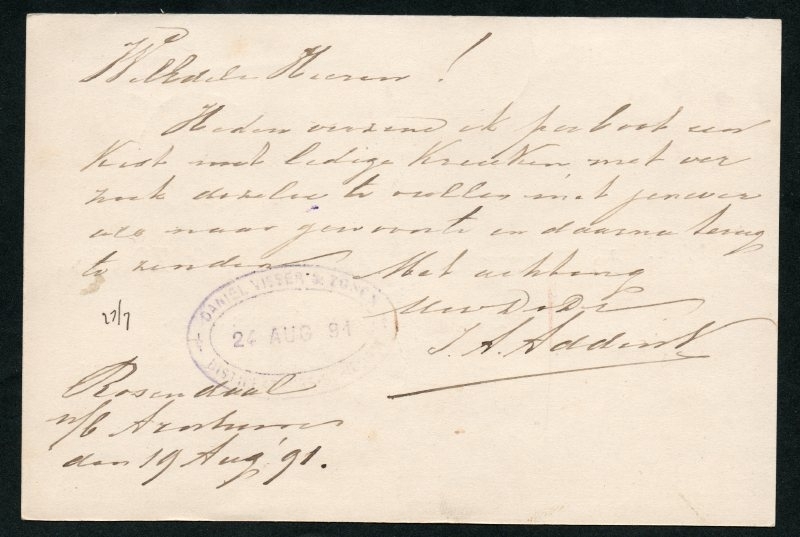 WelEdele Heeren!
Heden verzend ik per boot een
kist met ledige kruiken met ver
zoek dezelve te vullen met jenever
als naar gewoonte en daarna terug
te zenden Met achting
UwDDr
J. A. Addink
DANIEL VISSER & ZONEN
24 AUG 91
27/7
Rosendaal
den 19 Aug' 91.